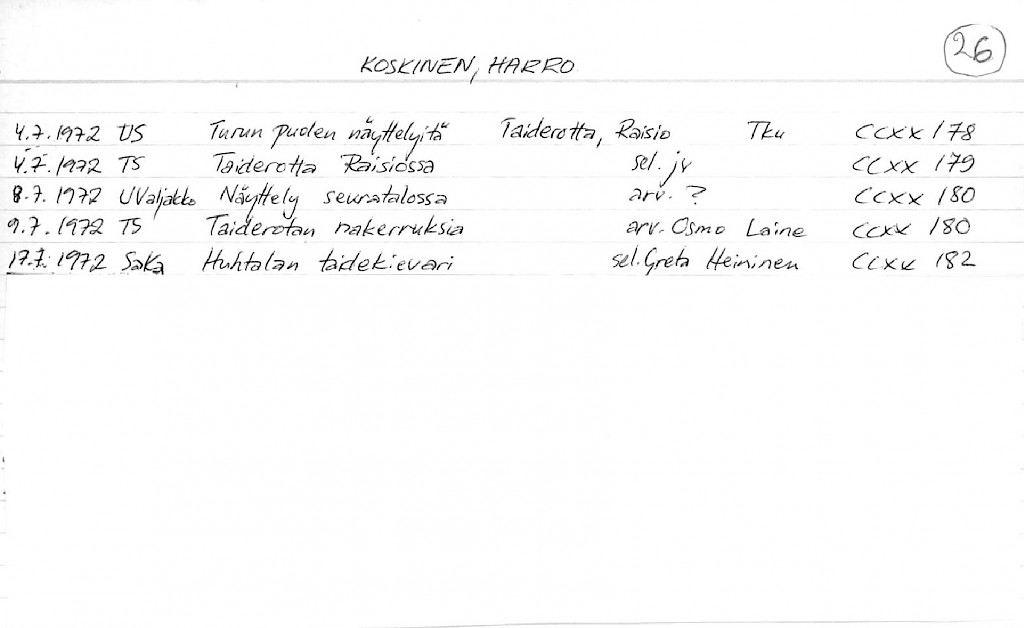 26
KOSKINEN, HARRO
4.7.1972 US Turun puolen näyttelyitä Taiderotta, Raisio Tku CCXX 178
4.7.1972 TS Taiderotta Raisiossa sel. jv CCXX 179
8.7.1972 UValjakko Näyttely seuratalossa arv. ? CCXX 180
9.7.1972 TS Taiderotan nakerruksia arv. Osmo Laine CCXX 180
17.7.1972 SaKa Huhtalan taidekievari sel. Greta Heininen CCXX 182